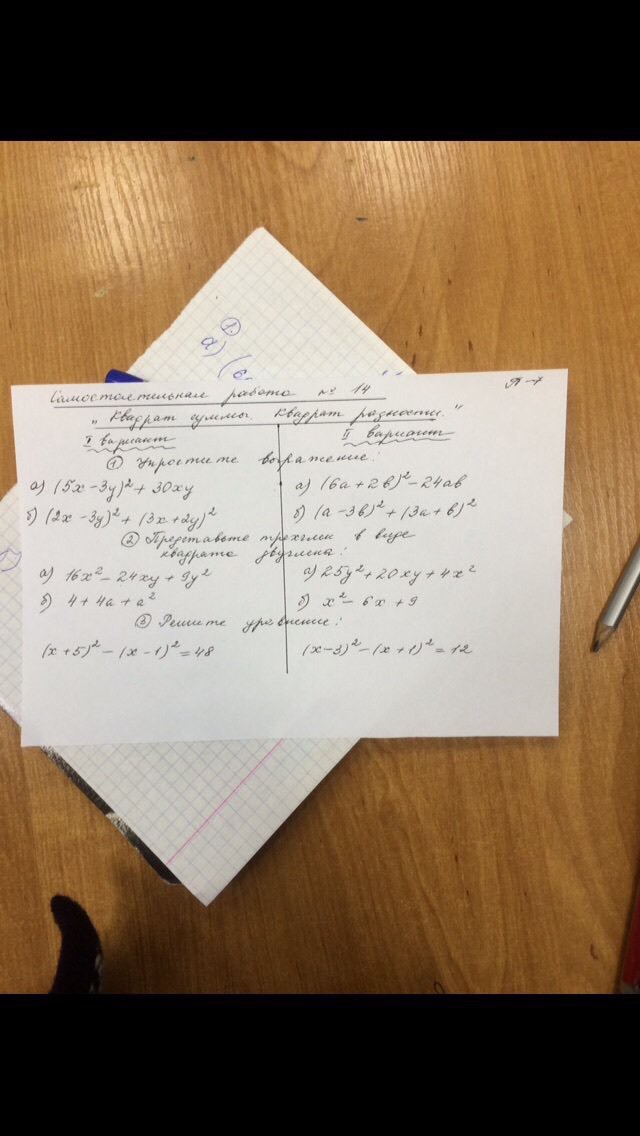 ① 
а) (6
Самостоятельная работа № 14
А-7
„Квадрат суммы. Квадрат разности."
I вариант
II вариант
① Упростите выражение:
а) (5x - 3y)² + 30xy
а) (6a + 2b)² - 24ab
б) (2x - 3y)² + (3x + 2y)²
б) (a - 3b)² + (3a + b)²
② Представьте трёхчлен в виде
квадрата двучлена:
а) 16x² - 24xy + 9y²
а) 25y² + 20xy + 4x²
б) 4 + 4a + a²
б) x² - 6x + 9
③ Решите уравнение:
(x + 5)² - (x - 1)² = 48
(x - 3)² - (x + 1)² = 12